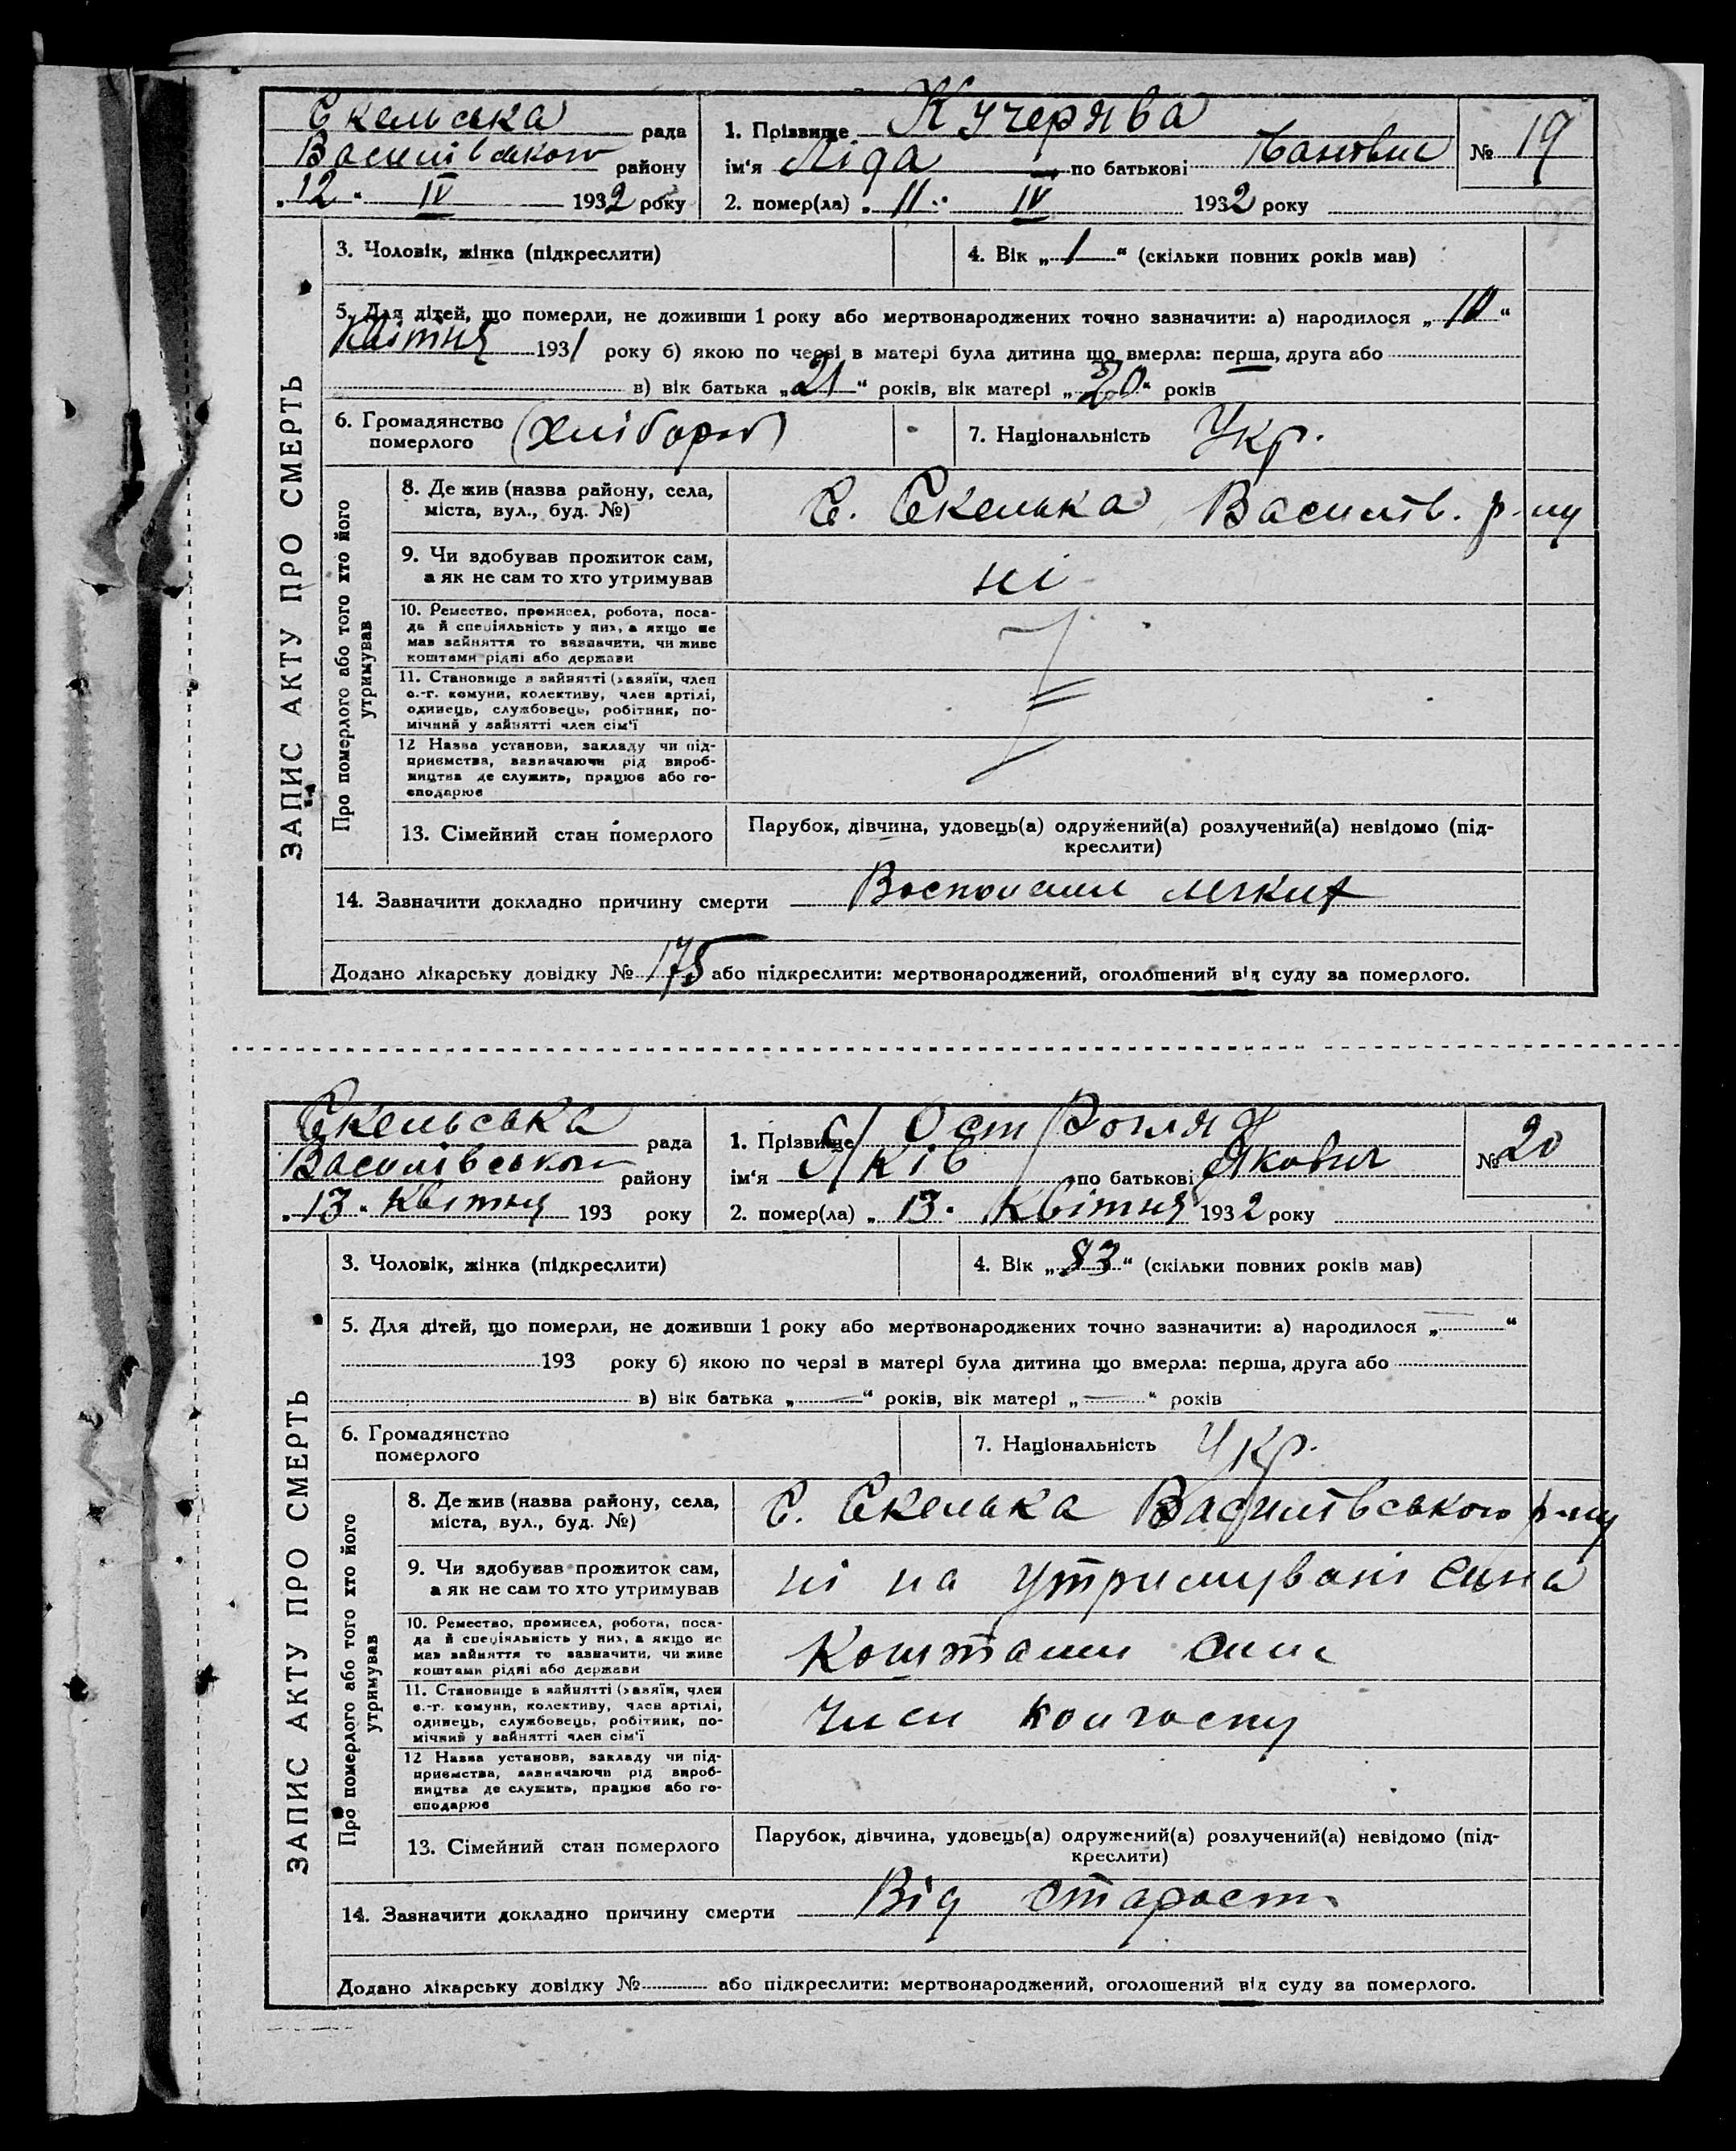 Скельська рада
Василівського району
„12“ IV 1932 року
1. Прізвище Кучерява
ім‘я Ліда по батькові
№ 19
2. помер(ла) „11“ IV 1932 року
ЗАПИС АКТУ ПРО СМЕРТЬ
3. Чоловік, жінка (підкреслити)
4. Вік „1“ (скільки повних років мав)
5. Для дітей, що померли, не доживши 1 року або мертвонароджених точно зазначити: а) народилося „10“
Квітня 1931 року б) якою по черзі в матері була дитина що вмерла: перша, друга або
в) вік батька „21“ років, вік матері „20“ років
6. Громадянство
померлого
(хлібороб)
7. Національність Укр.
Про померлого або того хто його
утримував
8. Де жив (назва району, села,
міста, вул., буд. №)
С. Скелька Василів. р-ну
9. Чи здобував прожиток сам,
а як не сам то хто утримував
ні
10. Ремество, промисел, робота, поса-
да й спеціяльність у них, а якщо не
мав зайняття то зазначити, чи живе
коштами рідні або держави
11. Становище в зайнятті (хазяїн, член
с.-г. комуни, колективу, член артілі,
одинець, службовець, робітник, по-
мічний у зайнятті член сім‘ї
12 Назва установи, закладу чи під-
приємства, зазначаючи рід вироб-
ництва де служить, працює або го-
сподарює
13. Сімейний стан померлого
Парубок, дівчина, удовець(а) одружений(а) розлучений(а) невідомо (під-
креслити)
14. Зазначити докладно причину смерти легких
Додано лікарську довідку № 175 або підкреслити: мертвонароджений, оголошений від суду за померлого.
Скельська рада
Василівського району
„13“ Квітня 193 року
1. Прізвище
ім‘я Яків по батькові Якович
№ 20
2. помер(ла) „13“ Квітня 1932 року
ЗАПИС АКТУ ПРО СМЕРТЬ
3. Чоловік, жінка (підкреслити)
4. Вік „83“ (скільки повних років мав)
5. Для дітей, що померли, не доживши 1 року або мертвонароджених точно зазначити: а) народилося „—“
193 року б) якою по черзі в матері була дитина що вмерла: перша, друга або
в) вік батька „—“ років, вік матері „—“ років
6. Громадянство
померлого
7. Національність Укр.
Про померлого або того хто його
утримував
8. Де жив (назва району, села,
міста, вул., буд. №)
С. Скелька Василівського р-ну
9. Чи здобував прожиток сам,
а як не сам то хто утримував
ні на утримувані сина
10. Ремество, промисел, робота, поса-
да й спеціяльність у них, а якщо не
мав зайняття то зазначити, чи живе
коштами рідні або держави
Коштами сина
11. Становище в зайнятті (хазяїн, член
с.-г. комуни, колективу, член артілі,
одинець, службовець, робітник, по-
мічний у зайнятті член сім‘ї
Член колгоспу
12 Назва установи, закладу чи під-
приємства, зазначаючи рід вироб-
ництва де служить, працює або го-
сподарює
13. Сімейний стан померлого
Парубок, дівчина, удовець(а) одружений(а) розлучений(а) невідомо (під-
креслити)
14. Зазначити докладно причину смерти Від старости
Додано лікарську довідку № або підкреслити: мертвонароджений, оголошений від суду за померлого.